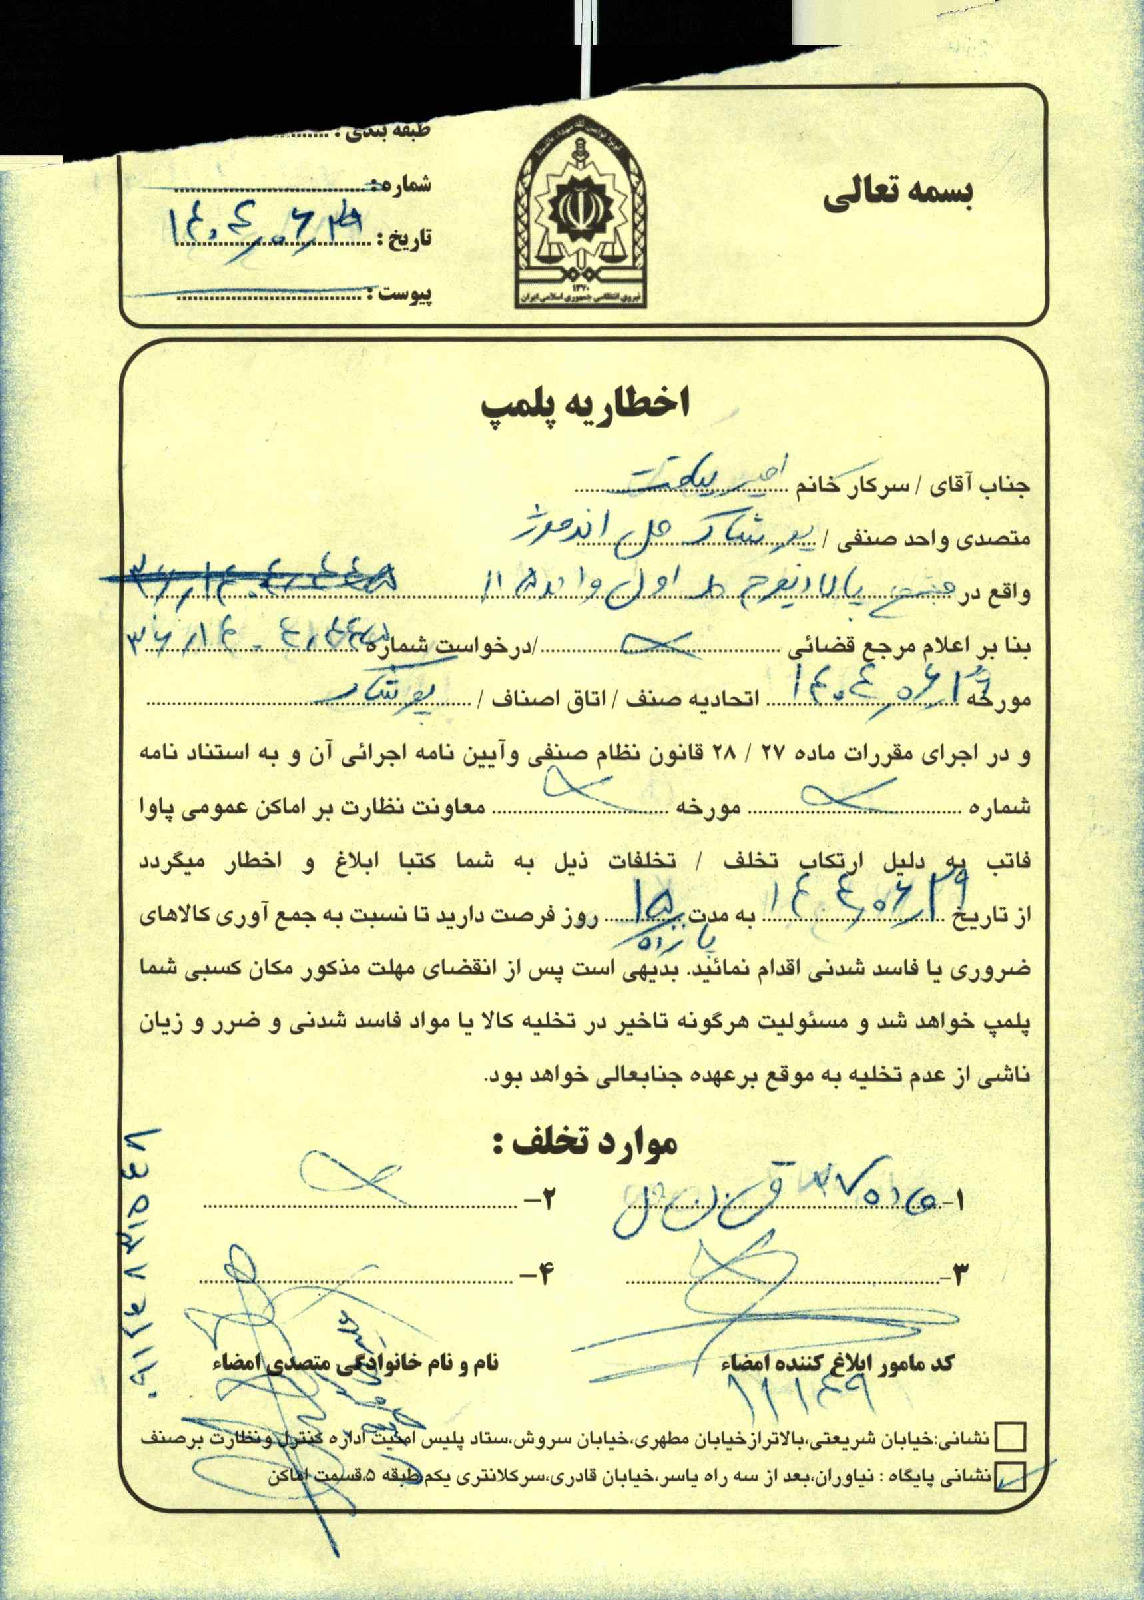 بسمه تعالی
طبقه بندی :
شماره :
تاریخ : ۱۴۰۴/۰۶/۲۹
پیوست :
۱۳۷۰
نیروی انتظامی جمهوری اسلامی ایران
اخطاریه پلمپ
جناب آقای / سرکار خانم امیر
متصدی واحد صنفی / پوشاک
واقع در مجتمع پالادیوم ط اول واحد
بنا بر اعلام مرجع قضائی /درخواست شماره
مورخه ۱۴۰۴/۰۶/۲۹ اتحادیه صنف / اتاق اصناف / پوشاک
و در اجرای مقررات ماده ۲۷ / ۲۸ قانون نظام صنفی وآیین نامه اجرائی آن و به استناد نامه
شماره مورخه معاونت نظارت بر اماکن عمومی پاوا
فاتب به دلیل ارتکاب تخلف / تخلفات ذیل به شما کتبا ابلاغ و اخطار میگردد
از تاریخ ۱۴۰۴/۰۶/۲۹ به مدت ۱۵ روز فرصت دارید تا نسبت به جمع آوری کالاهای
ضروری یا فاسد شدنی اقدام نمائید. بدیهی است پس از انقضای مهلت مذکور مکان کسبی شما
پلمپ خواهد شد و مسئولیت هرگونه تاخیر در تخلیه کالا یا مواد فاسد شدنی و ضرر و زیان
ناشی از عدم تخلیه به موقع برعهده جنابعالی خواهد بود.
موارد تخلف :
۱- ماده ۲۷ ق ن ص
۲-
۳-
۴-
کد مامور ابلاغ کننده امضاء
نام و نام خانوادگی متصدی امضاء
نشانی:خیابان شریعتی،بالاتراز‌خیابان مطهری،خیابان سروش،ستاد پلیس امنیت اداره کنترل ونظارت برصنف
نشانی پایگاه : نیاوران،بعد از سه راه یاسر،خیابان قادری،سرکلانتری یکم،طبقه ۵،قسمت اماکن